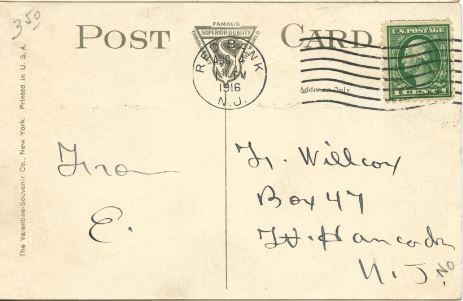 3.50
POST CARD
FAMOUS
SUPERIOR QUALITY
RED BANK
4
PM
1916
N.J.
U.S. POSTAGE
1 CENT 1
Address Only
The Valentine-Souvenir Co., New York. Printed in U.S.A.
From
E.
Willcox
Box 47
Hancock
N.J.
NO